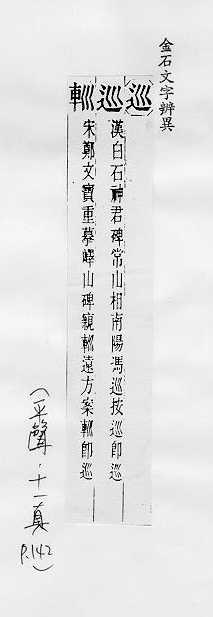 金石文字辨異
巡
巡 漢白石神君碑常山相南陽馮巡按巡即巡
䡅 宋鄭文寶重摹嶧山碑親䡅遠方案䡅即巡
(平聲.十一真 p.142)